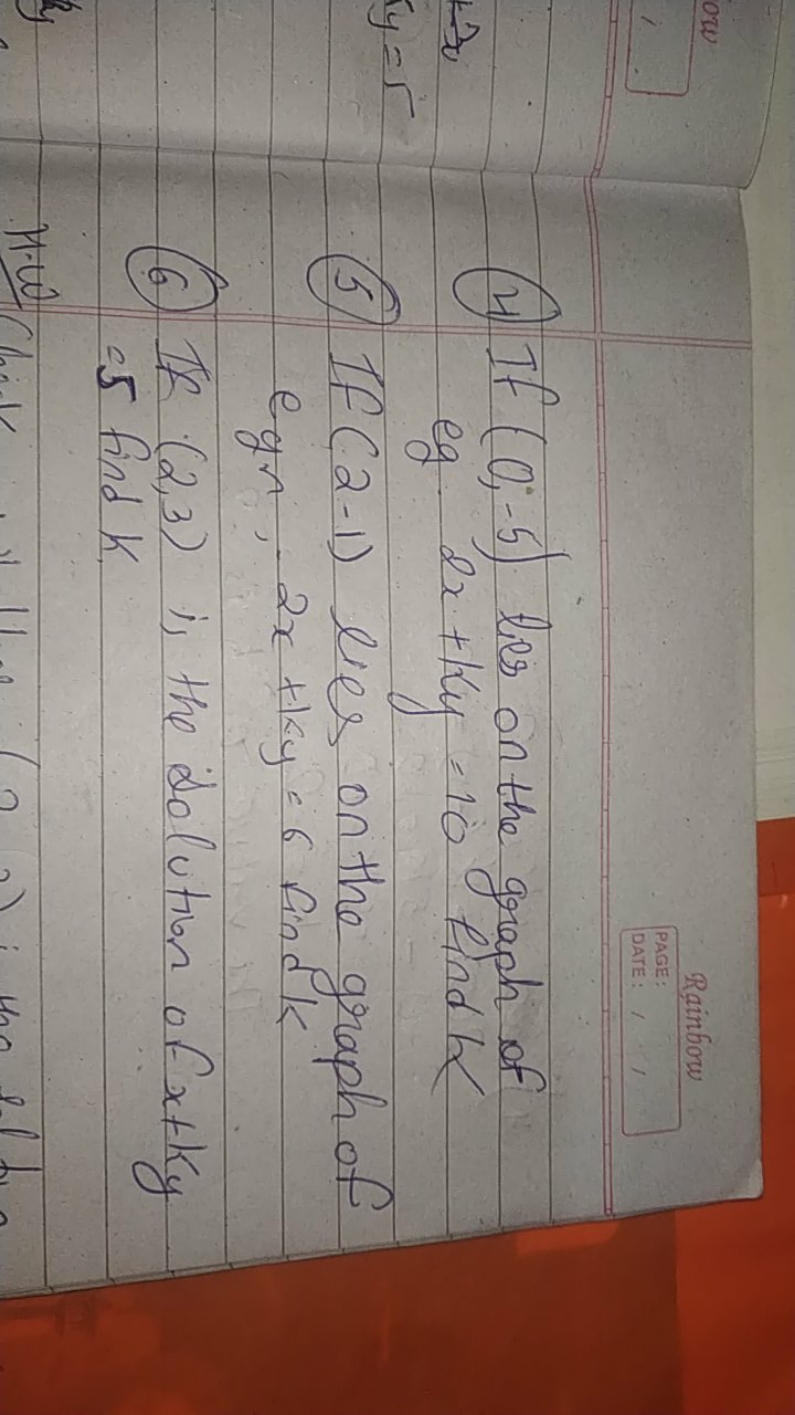 Rainbow
PAGE:
DATE: / /
④ If (0,-5) lies on the graph of
eq 2x + Ky = 10 find K
⑤ If (2-1) lies on the graph of
eqn, 2x + ky = 6 find k
⑥ If (2,3) is the solution of x+Ky
=5 find K
H.W